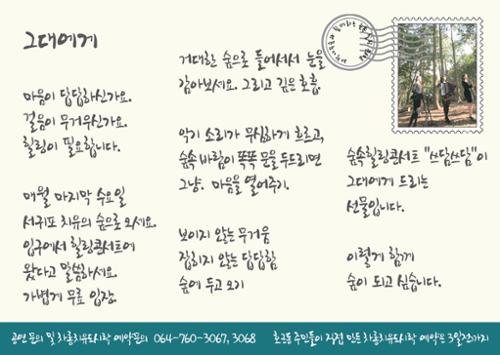 그대에게
마음이 답답하신가요.
걸음이 무거우신가요.
힐링이 필요합니다.
매월 마지막 수요일
서귀포 치유의 숲으로 오세요.
입구에서 힐링콘서트에
왔다고 말씀하세요.
가볍게 무료 입장.
거대한 숲으로 들어서서 눈을
감아보세요. 그리고 깊은 호흡.
악기 소리가 무심하게 흐르고,
숲속 바람이 똑똑 문을 두드리면
그냥. 마음을 열어주기.
보이지 않는 무거움
잡히지 않는 답답함
숲에 두고 오기
숲속힐링콘서트 "쓰담쓰담"이
그대에게 드리는
선물입니다.
이렇게 함께
숲이 되고 싶습니다.
공연 문의 및 차롱치유도시락 예약문의 064-760-3067, 3068
호근동 주민들이 직접 만든 차롱치유도시락 예약은 3일전까지